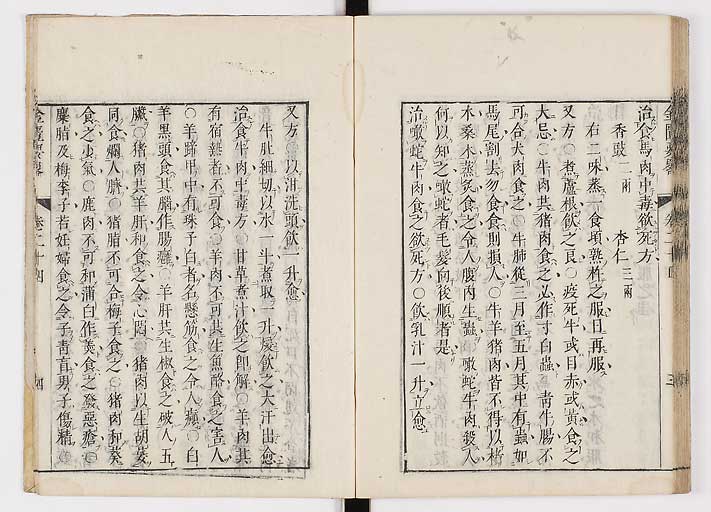 治食馬肉中毒欲死方
香豉二兩 杏仁三兩
右二味蒸一食頃熟杵之服日再服
又方○煮蘆根飲之良○疫死牛或目赤或黃食之
大忌○牛肉共猪肉食之必作寸白蟲○青牛腸不
可合犬肉食之○牛肺從三月至五月其中有蟲如
馬尾割去勿食食則損人○牛羊猪肉皆不得以楮
木桑木蒸炙食之令人腹內生蟲○噉蛇牛肉殺人
何以知之噉蛇者毛髮向後順者是
治噉蛇牛肉食之欲死方○飲人乳汁一升立愈
又方○以泔洗頭飲一升愈
牛肚細切以水一斗煮取一升煖飲之大汗出愈
治食牛肉中毒方○甘草煮汁飲之即解○羊肉其
有宿熱者不可食○羊肉不可共生魚酪食之害人
○羊蹄甲中有珠子白者名懸筋食之令人癲○白
羊黑頭食其腦作腸癰○羊肝共生椒食之破人五
臟○猪肉共羊肝和食之令心悶○猪肉以生胡荽
同食爛人臍○猪脂不可合梅子食之○猪肉和葵
食之少氣○鹿肉不可和蒲白作羮食之發惡瘡○
麋脂及梅李子若妊婦食之令子青盲男子傷精○
卷二十四